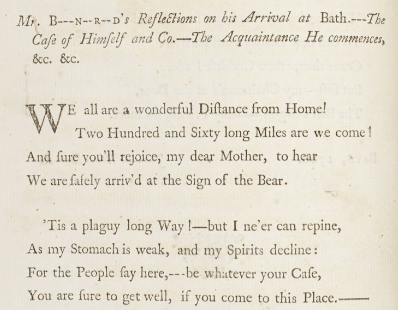 Mr. B---N--R--D's Reflections on his Arrival at Bath.---The
Caſe of Himſelf and Co.---The Acquaintance He commences,
&c. &c.
WE all are a wonderful Diſtance from Home!
Two Hundred and Sixty long Miles are we come!
And ſure you'll rejoice, my dear Mother, to hear
We are ſafely arriv'd at the Sign of the Bear.
'Tis a plaguy long Way!—but I ne'er can repine,
As my Stomach is weak, and my Spirits decline:
For the People ſay here,---be whatever your Caſe,
You are ſure to get well, if you come to this Place.——